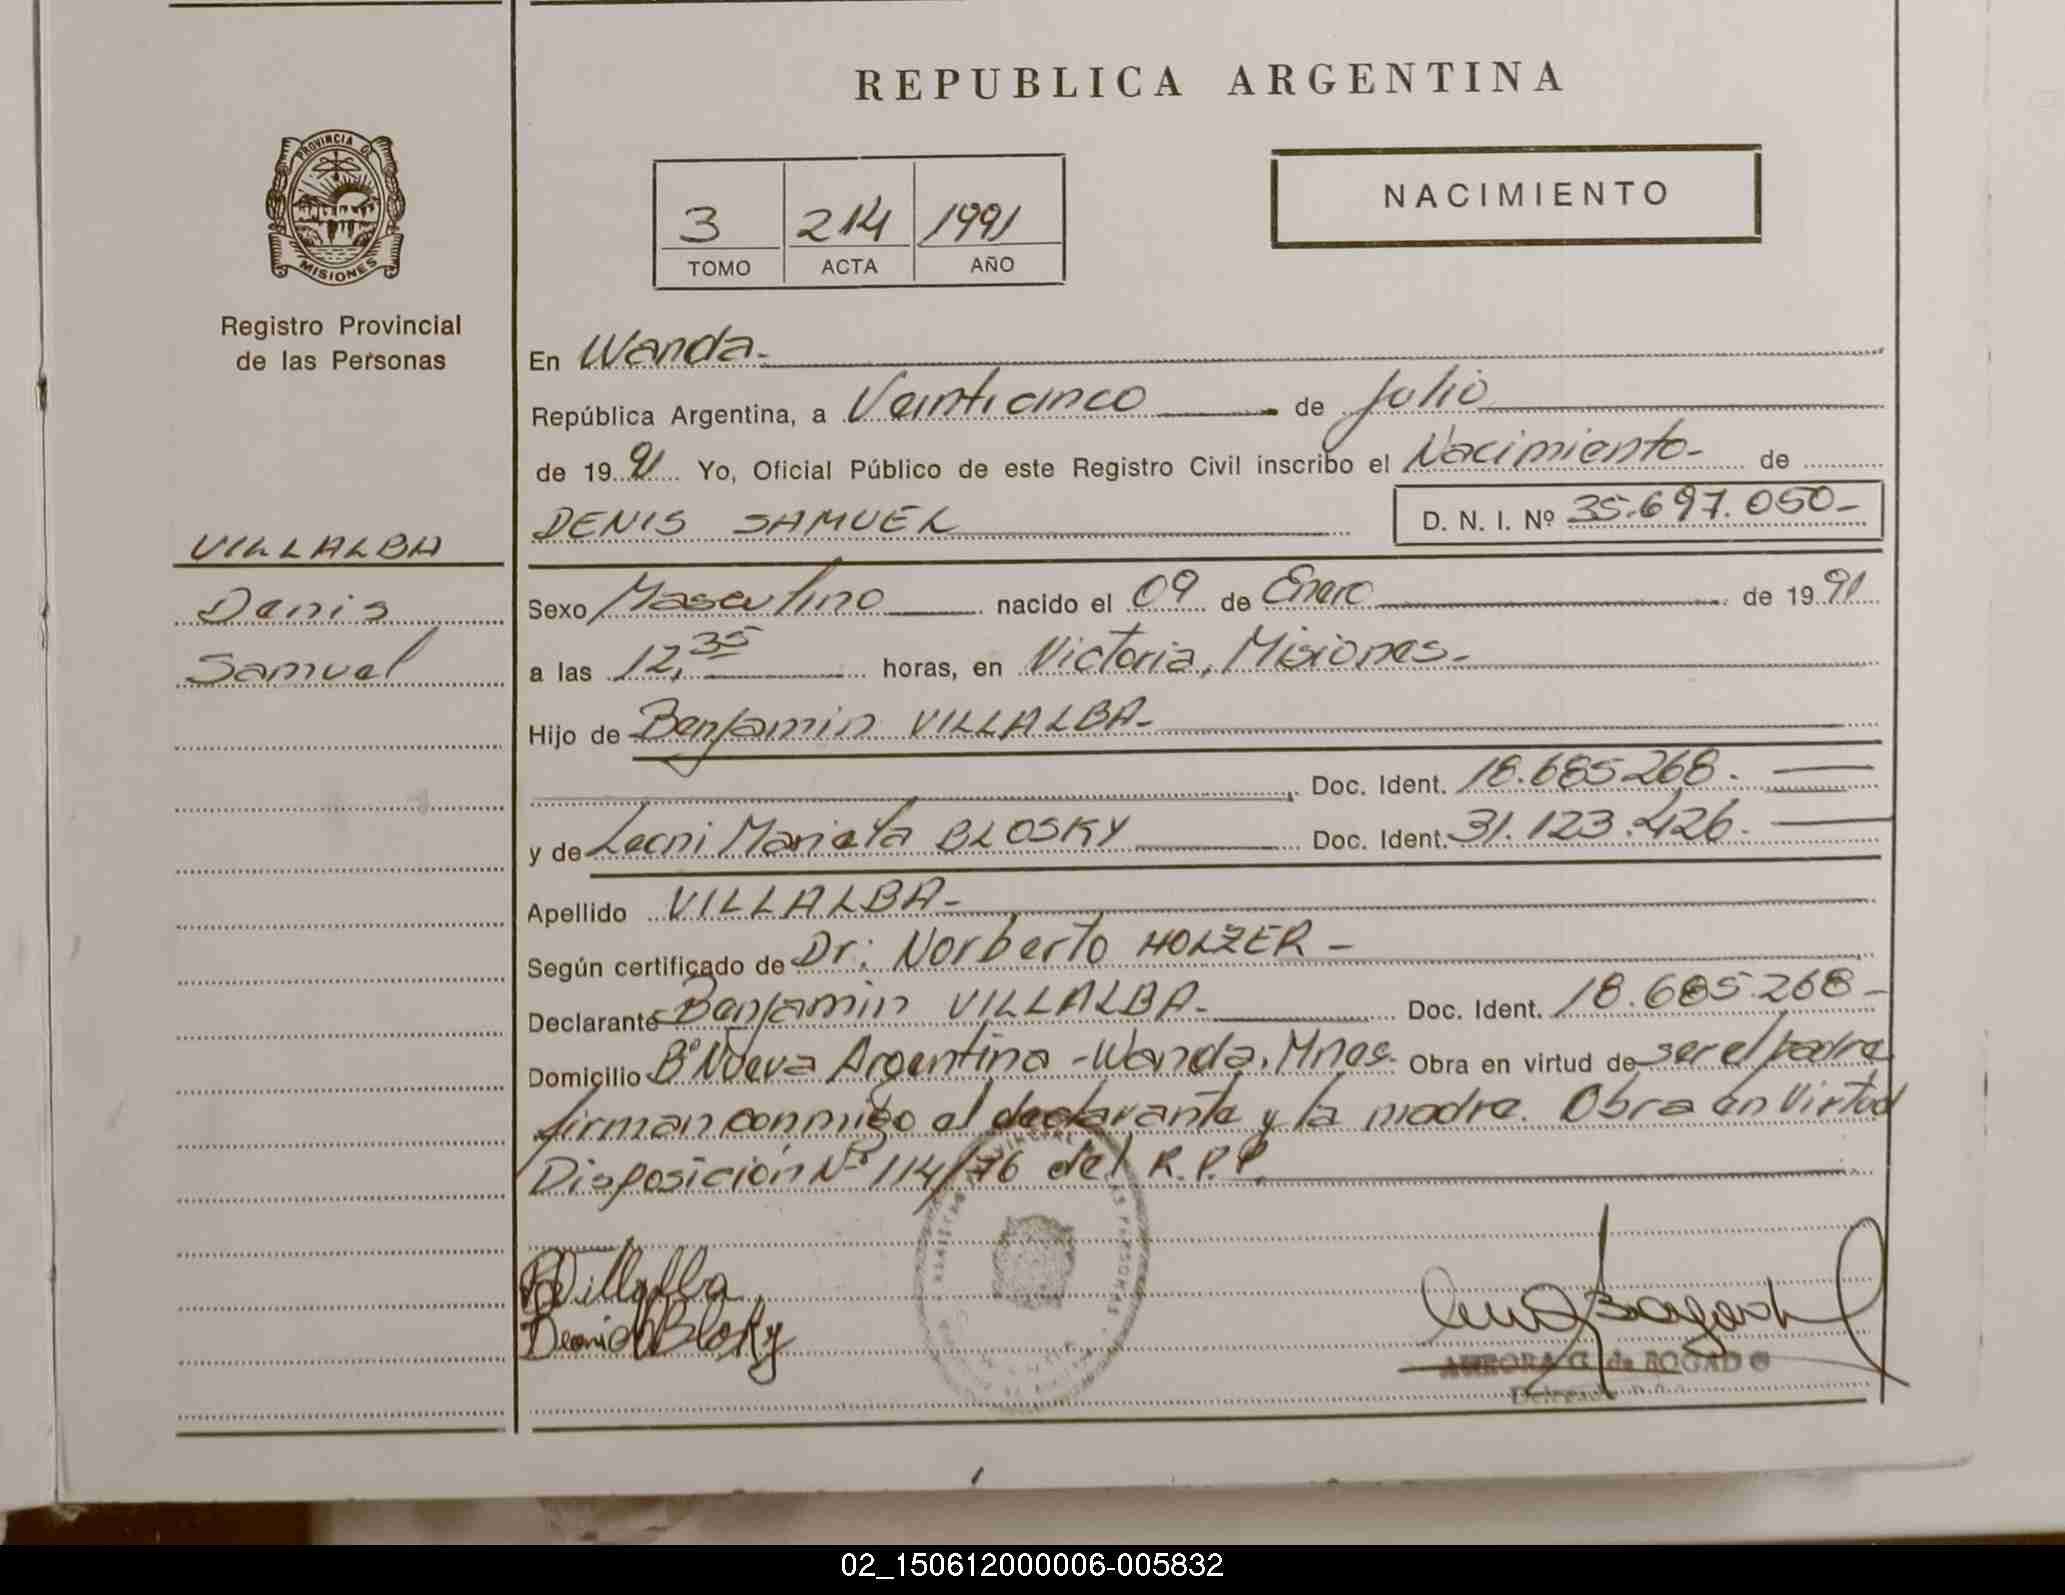 REPUBLICA ARGENTINA
PROVINCIA DE
MISIONES
Registro Provincial
de las Personas
3 214 1991
TOMO ACTA AÑO
NACIMIENTO
En Wanda.-
República Argentina, a Veinticinco de Julio
de 19 91 Yo, Oficial Público de este Registro Civil inscribo el Nacimiento- de
DENIS SAMUEL D. N. I. Nº 35.697.050-
VILLALBA
Denis
Samuel
Sexo Masculino nacido el 09 de Enero de 19 91
a las 12,35 horas, en Victoria, Misiones.-
Hijo de Benjamin VILLALBA-
Doc. Ident. 18.685.268.
y de Leoni Mariela BLOSKY Doc. Ident. 31.123.426.
Apellido VILLALBA-
Según certificado de Dr: Norberto HOLZER-
Declarante Benjamin VILLALBA- Doc. Ident. 18.685.268-
Domicilio Bº Nueva Argentina -Wanda, Mnes. Obra en virtud de ser el padre
firman conmigo el declarante y la madre. Obra en Virtud
Disposición Nº 114/76 del R.P.P.
BVillalba
Blosky
AURORA G. de BOGADO
02_150612000006-005832